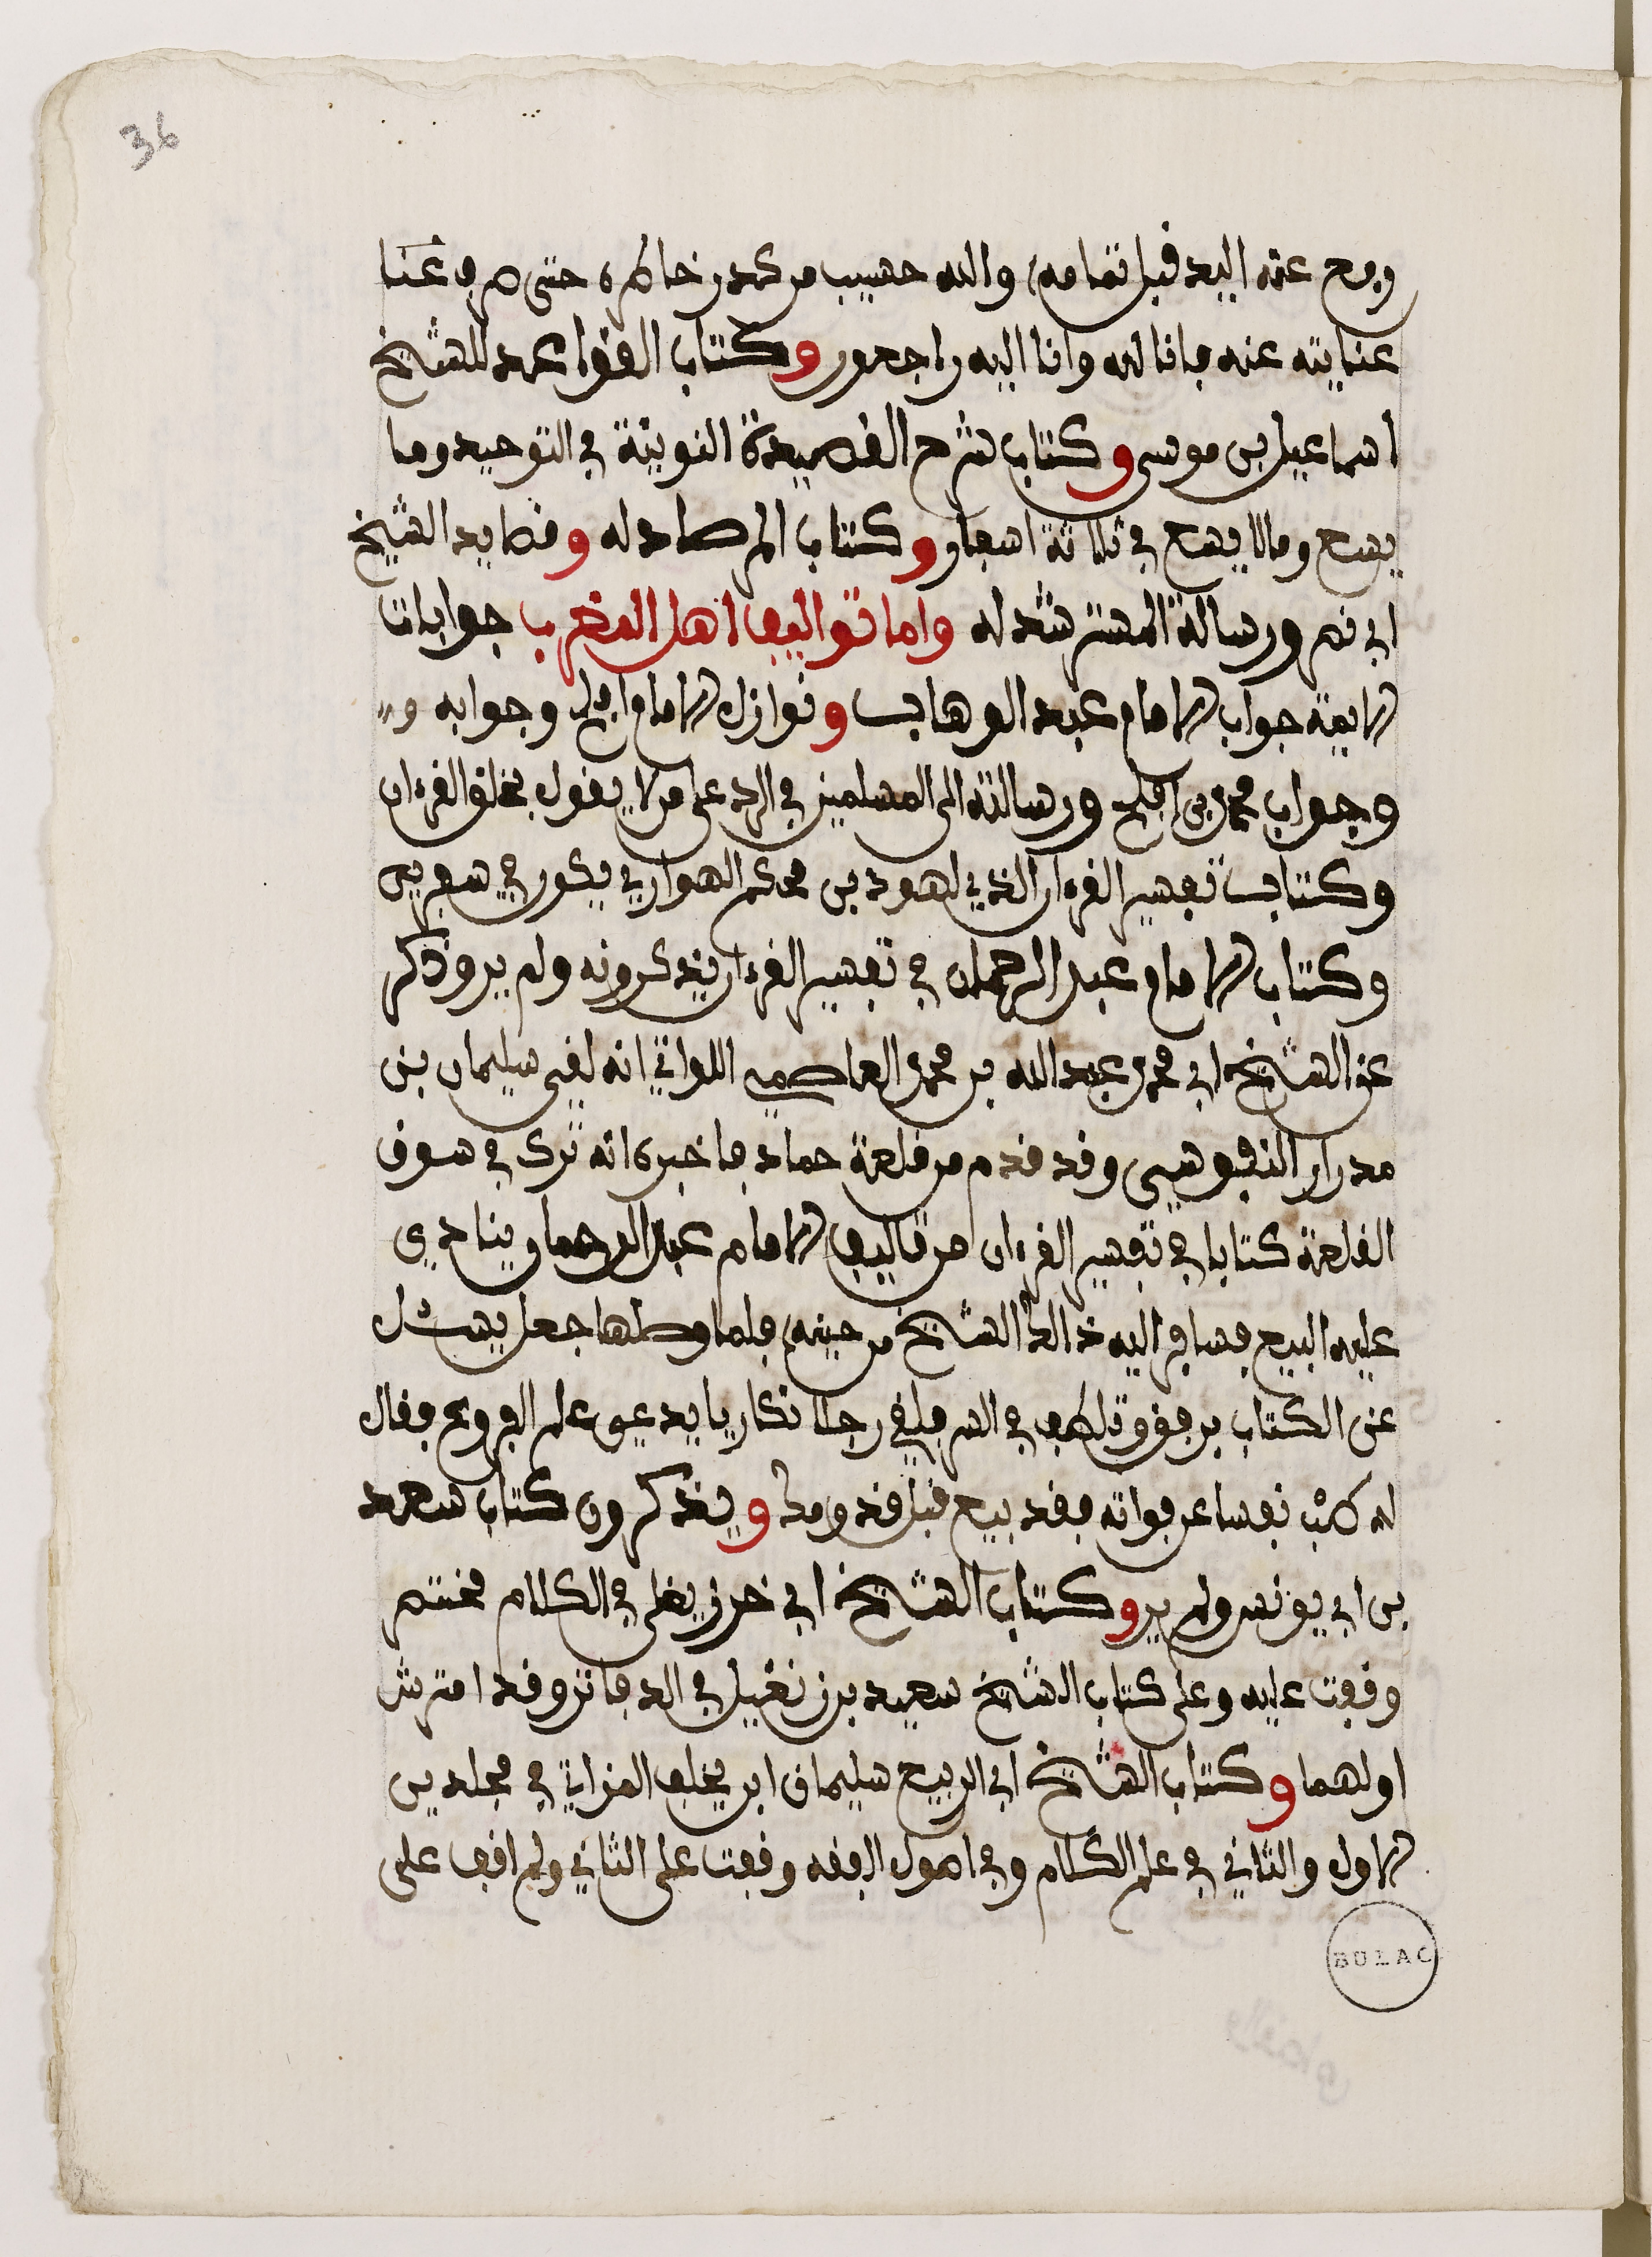 36
ورفع عنه اليد قبل تمامه والله حسيب من كدر خاطره حتى صرف عنا
عنايته عنه فانا لله وانا اليه راجعون وكتاب القواعد للشيخ
اسماعيل بن موسى وكتاب شرح القصيدة النونية في التوحيد وما
يسع وما لا يسع في ثلاثة اسفار وكتاب المرصاد له وقصايد الشيخ
ابي نصر ورسالة المسترشد له واما تواليف اهل المغرب جوابات
الايمة جواب الامام عبد الوهاب ونوازل الامام افلح وجوابه و
وجواب محمد بن افلح ورسالته الى المسلمين في الرد على من لا يقول بخلق القرءان
وكتاب تفسير القرءان الذي لهود بن محكم الهواري يكون في سفرين
وكتاب الامام عبد الرحمان في تفسير القرءان يذكرونه ولم ير وذكر
عن الشيخ ابي محمد عبد الله بن محمد العاصمي اللواتي انه لقى سليمان بن
مدرار النفوسي وقد قدم من قلعة حماد فاخبره انه ترك في سوق
القلعة كتابا في تفسير القرءان من تاليف الامام عبد الرحمان ينادي
عليه البيع فسافر اليه ذالك الشيخ من حينه فلما وصلها جعل يسئل
عن الكتاب برفق وتلطف في السر فلقي رجلا نكاريا يدعى علم الفروع فقال
له طب نفسا عن فواته فقد بيع قبل قدومك ويذكرون كتاب سعد
بن ابي يونس ولم ير وكتاب الشيخ ابي خزر يغلى في الكلام مختصر
وقفت عليه وعلى كتاب الشيخ سعيد بن زنغيل في الدفاتر وقد افترش
اولهما وكتاب الشيخ ابي الربيع سليمان ابن يخلف المزاتي في مجلدين
الاول والثاني في علم الكلام وفي اصول الفقه وقفت على الثاني ولم اقف على
BULAC